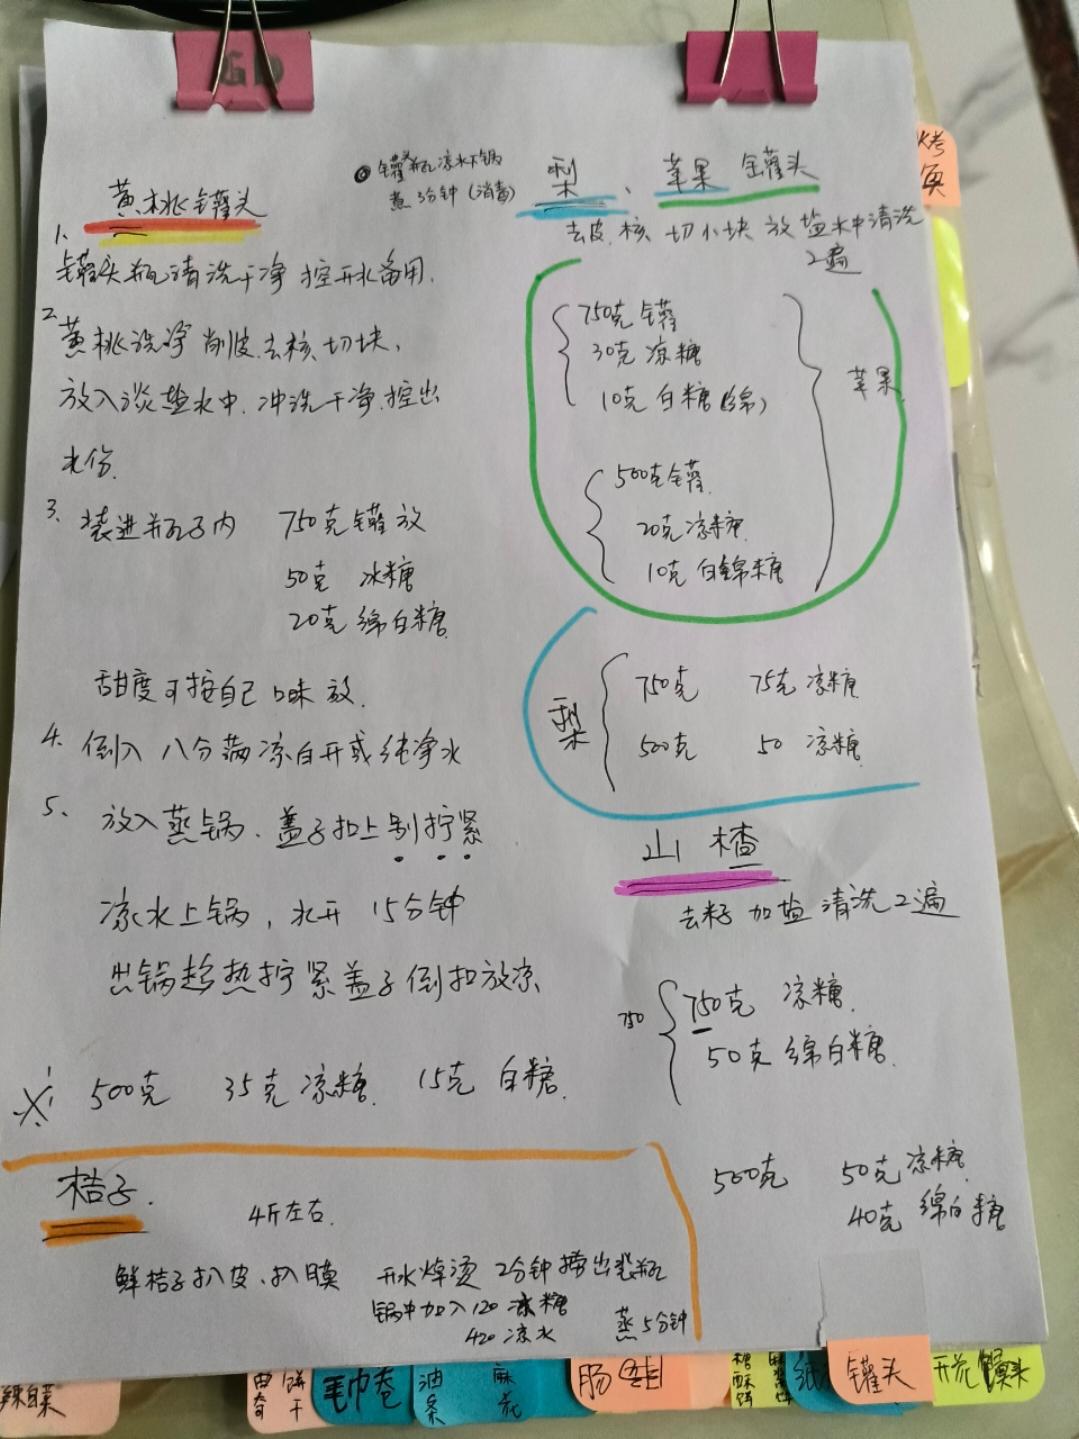 GD
黄桃罐头
1、
罐头瓶清洗干净 控开水备用.
2、
黄桃洗净 削皮.去核.切块、
放入淡盐水中.冲洗干净.控出
水份.
3、 装进瓶子内 750克罐放
50克 冰糖
20克 绵白糖
甜度可按自己口味放.
4. 倒入 八分满凉白开或纯净水
5、 放入蒸锅、盖子扣上别拧紧
凉水上锅,水开 15分钟
出锅趁热拧紧盖子倒扣放凉
※ 500克 35克凉糖. 15克 白糖.
桔子.
4斤左右.
鲜桔子扒皮、扒膜 开水焯烫 2分钟捞出装瓶
锅中加入120 凉糖
420 凉水 蒸5分钟
罐头瓶凉水下锅
煮 3分钟(消毒)
梨、苹果 罐头
去皮.核 切小块 放盐水中清洗
2遍
750克罐
30克 凉糖
10克 白糖(绵)
苹果
500克罐
20克凉糖
10克白绵糖
梨
750克 75克凉糖
500克 50 凉糖
山楂
去籽 加盐清洗2遍
750
750克 凉糖
50克 绵白糖
500克 50克凉糖
40克 绵白糖
烤
辣白菜
曲奇
饼干
毛巾卷
油条
麻花
肠
糖酥饼
纸
罐头
开花馒头